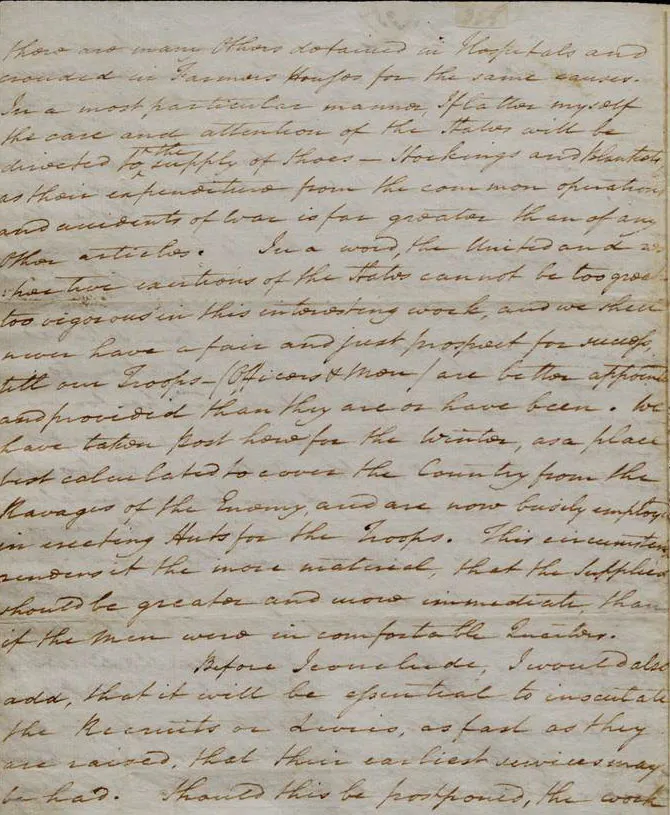 there are many Others detained in Hospitals and
crouded in Farmers Houses for the same causes.
In a most particular manner, I flatter myself
the care and attention of the States will be
directed to the supply of Shoes — Stockings and Blankets
as their expenditure from the common operations
and accidents of War is far greater than of any
Other articles. In a word, the United and re
spective exertions of the States cannot be too great
too vigorous in this interesting work, and we shall
never have a fair and just prospect for success
till our Troops — (Officers & Men) are better appointed
and provided than they are or have been. We
have taken Post here for the Winter, as a place
best calculated to cover the Country from the
Ravages of the Enemy, and are now busily employd
in erecting Huts for the Troops. This circumstance
renders it the more material, that the Supplies
should be greater and more immediate, than
if the Men were in comfortable Quarters.
Before I conclude, I would also
add, that it will be essential to inoculate
the Recruits or Levies, as fast as they
are raised, that their earliest services may
be had. Should this be postponed, the work